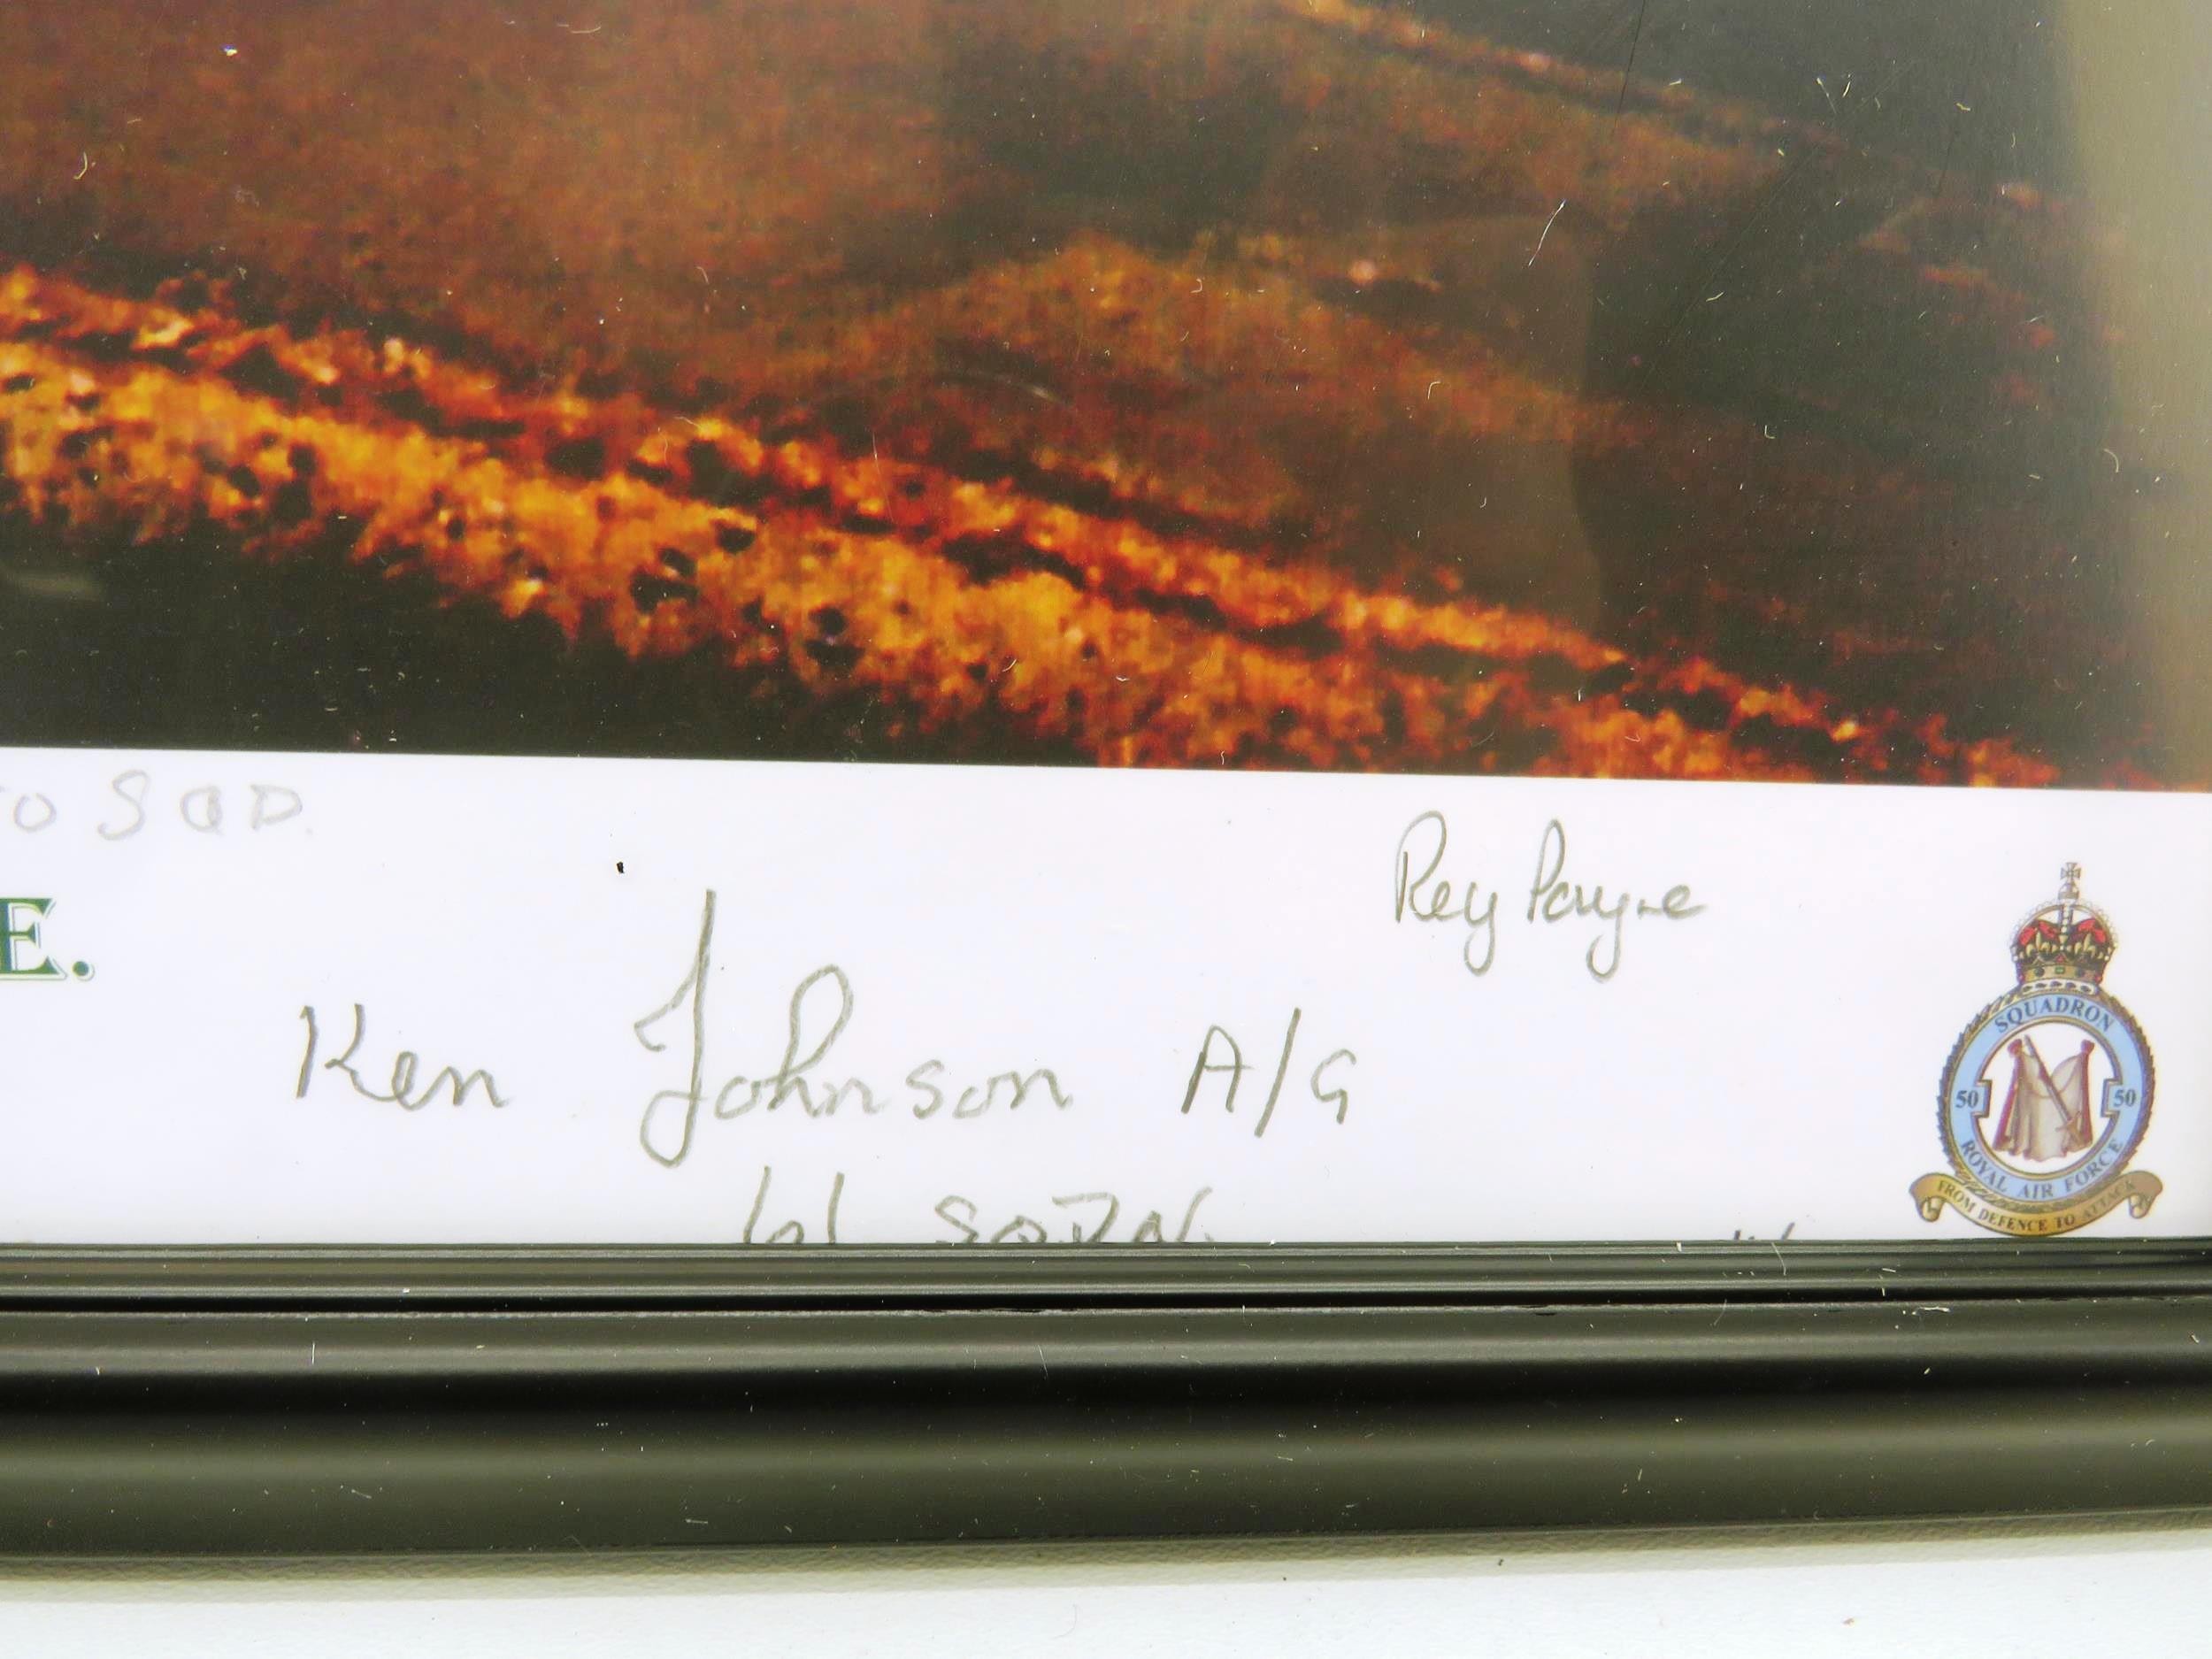 SQD.
E.
Reg Payne
Ken Johnson A/G
61 SQDN.
SQUADRON
50 50
ROYAL AIR FORCE
FROM DEFENCE TO ATTACK